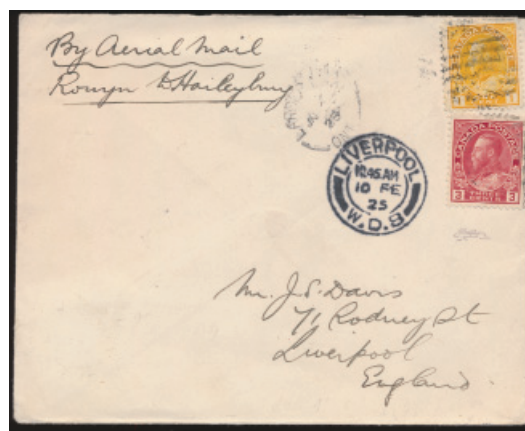 By Aerial Mail
Rouyn to Haileybury
CANADA POSTAGE
LIVERPOOL
10.45 AM
10 FE
25
W.D.8
CANADA POSTAGE
3 3
Mr. J.S. Davis
71 Rodney St
Liverpool
England.